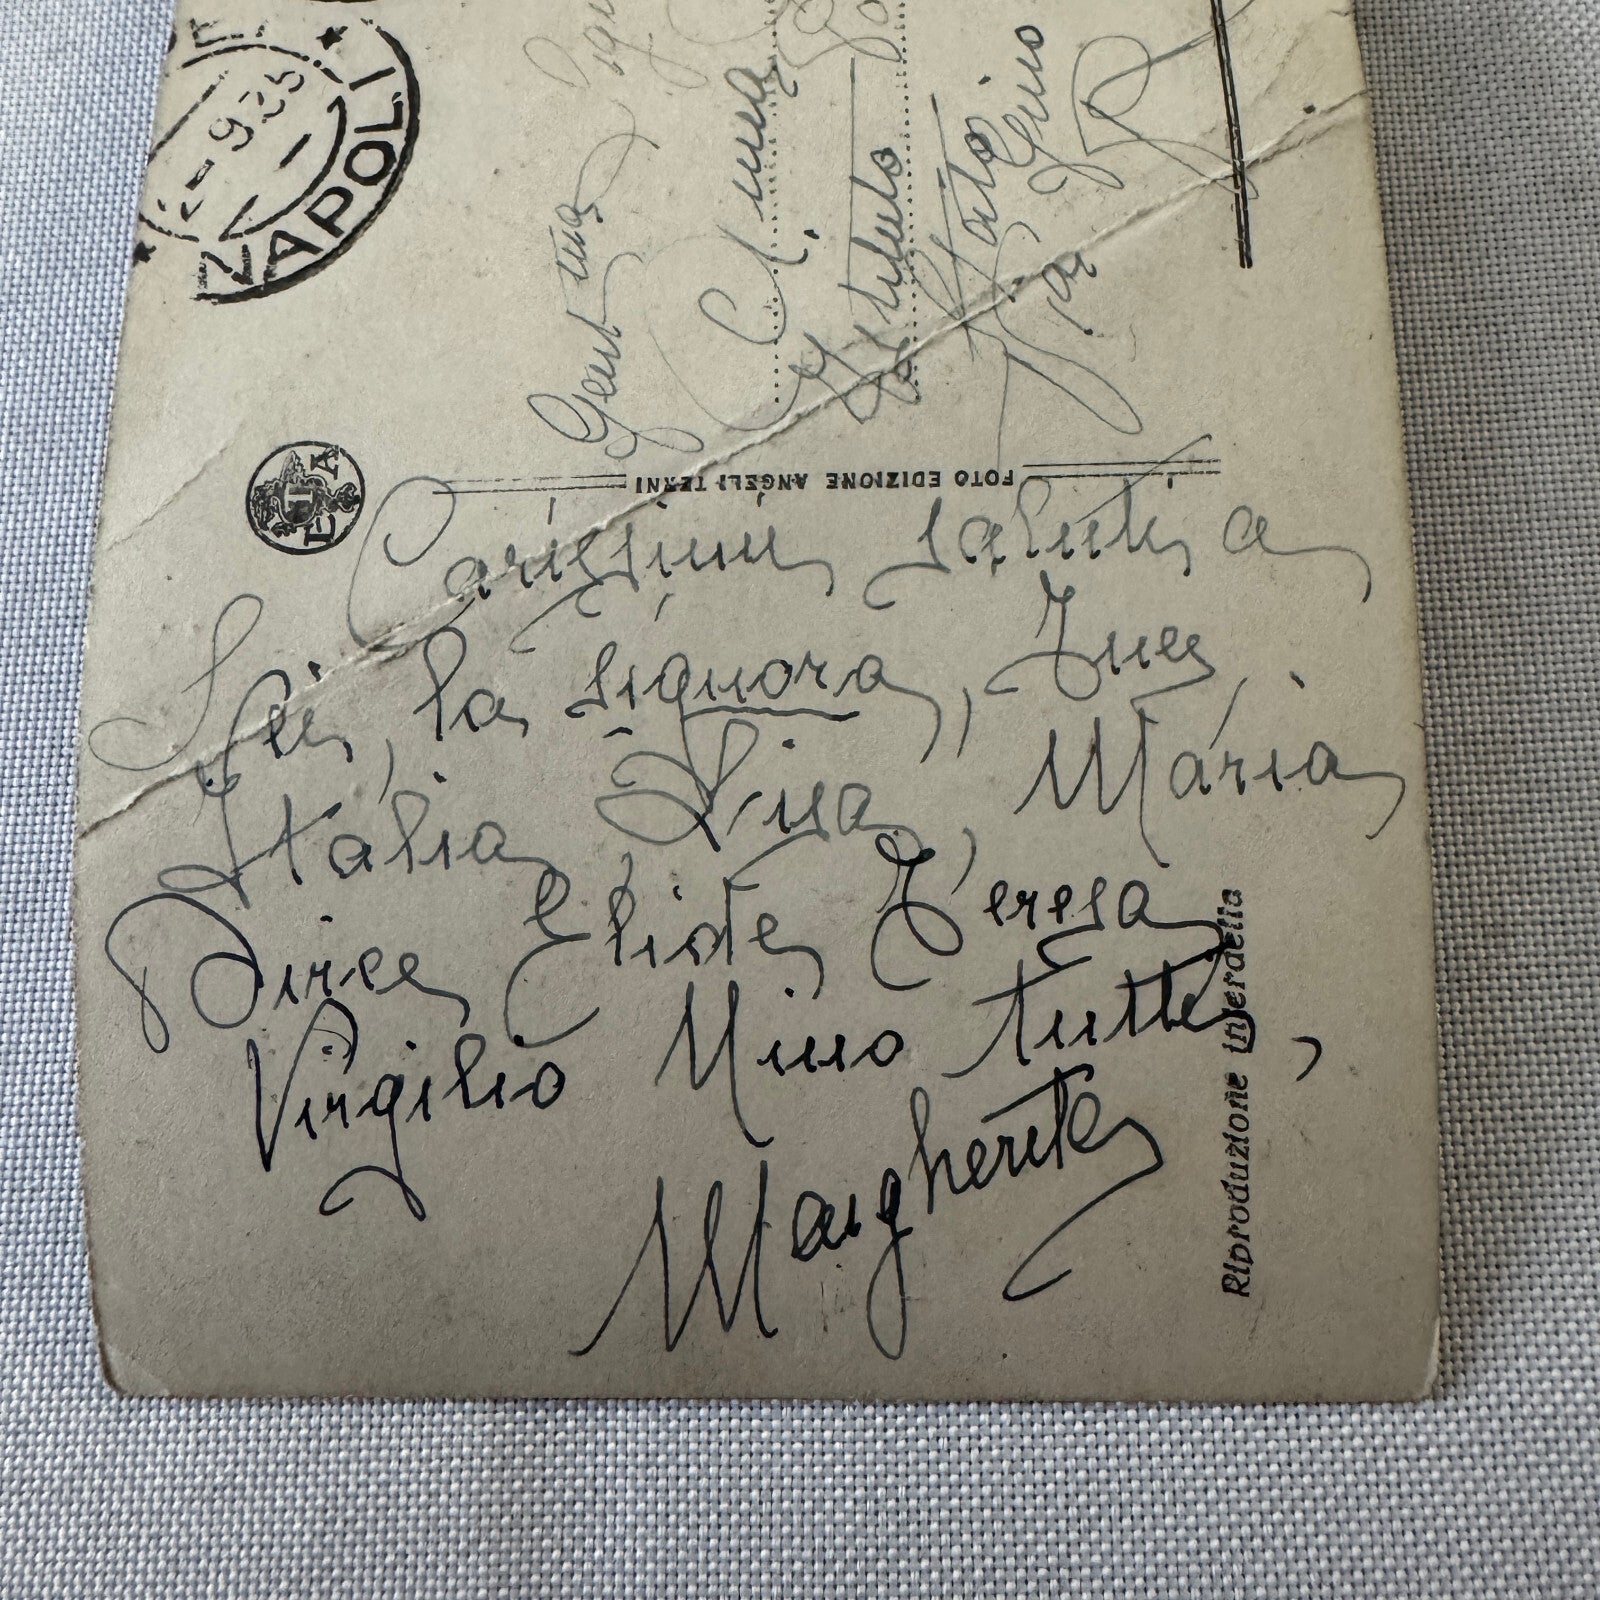 NAPOLI
-9.35
Gent.ma
Istituto
Gino
FOTO EDIZIONE ANGELI TERNI
Carissimi saluti a
Lei, la signora, Ines
Italia, Lina, Maria
Dirce Elide Teresa
Virgilio Nino tutti,
Margherita
Riproduzione interdetta